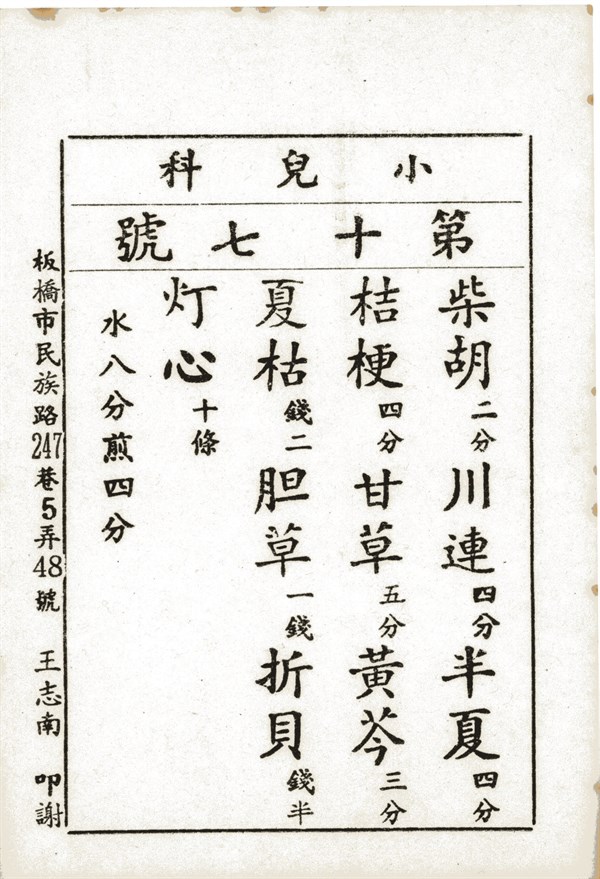 小兒科
第十七號
柴胡二分川連四分半夏四分
桔梗四分甘草五分黃芩三分
夏枯錢二胆草一錢折貝錢半
灯心十條
水八分煎四分
板橋市民族路247巷5弄48號 王志南 叩謝